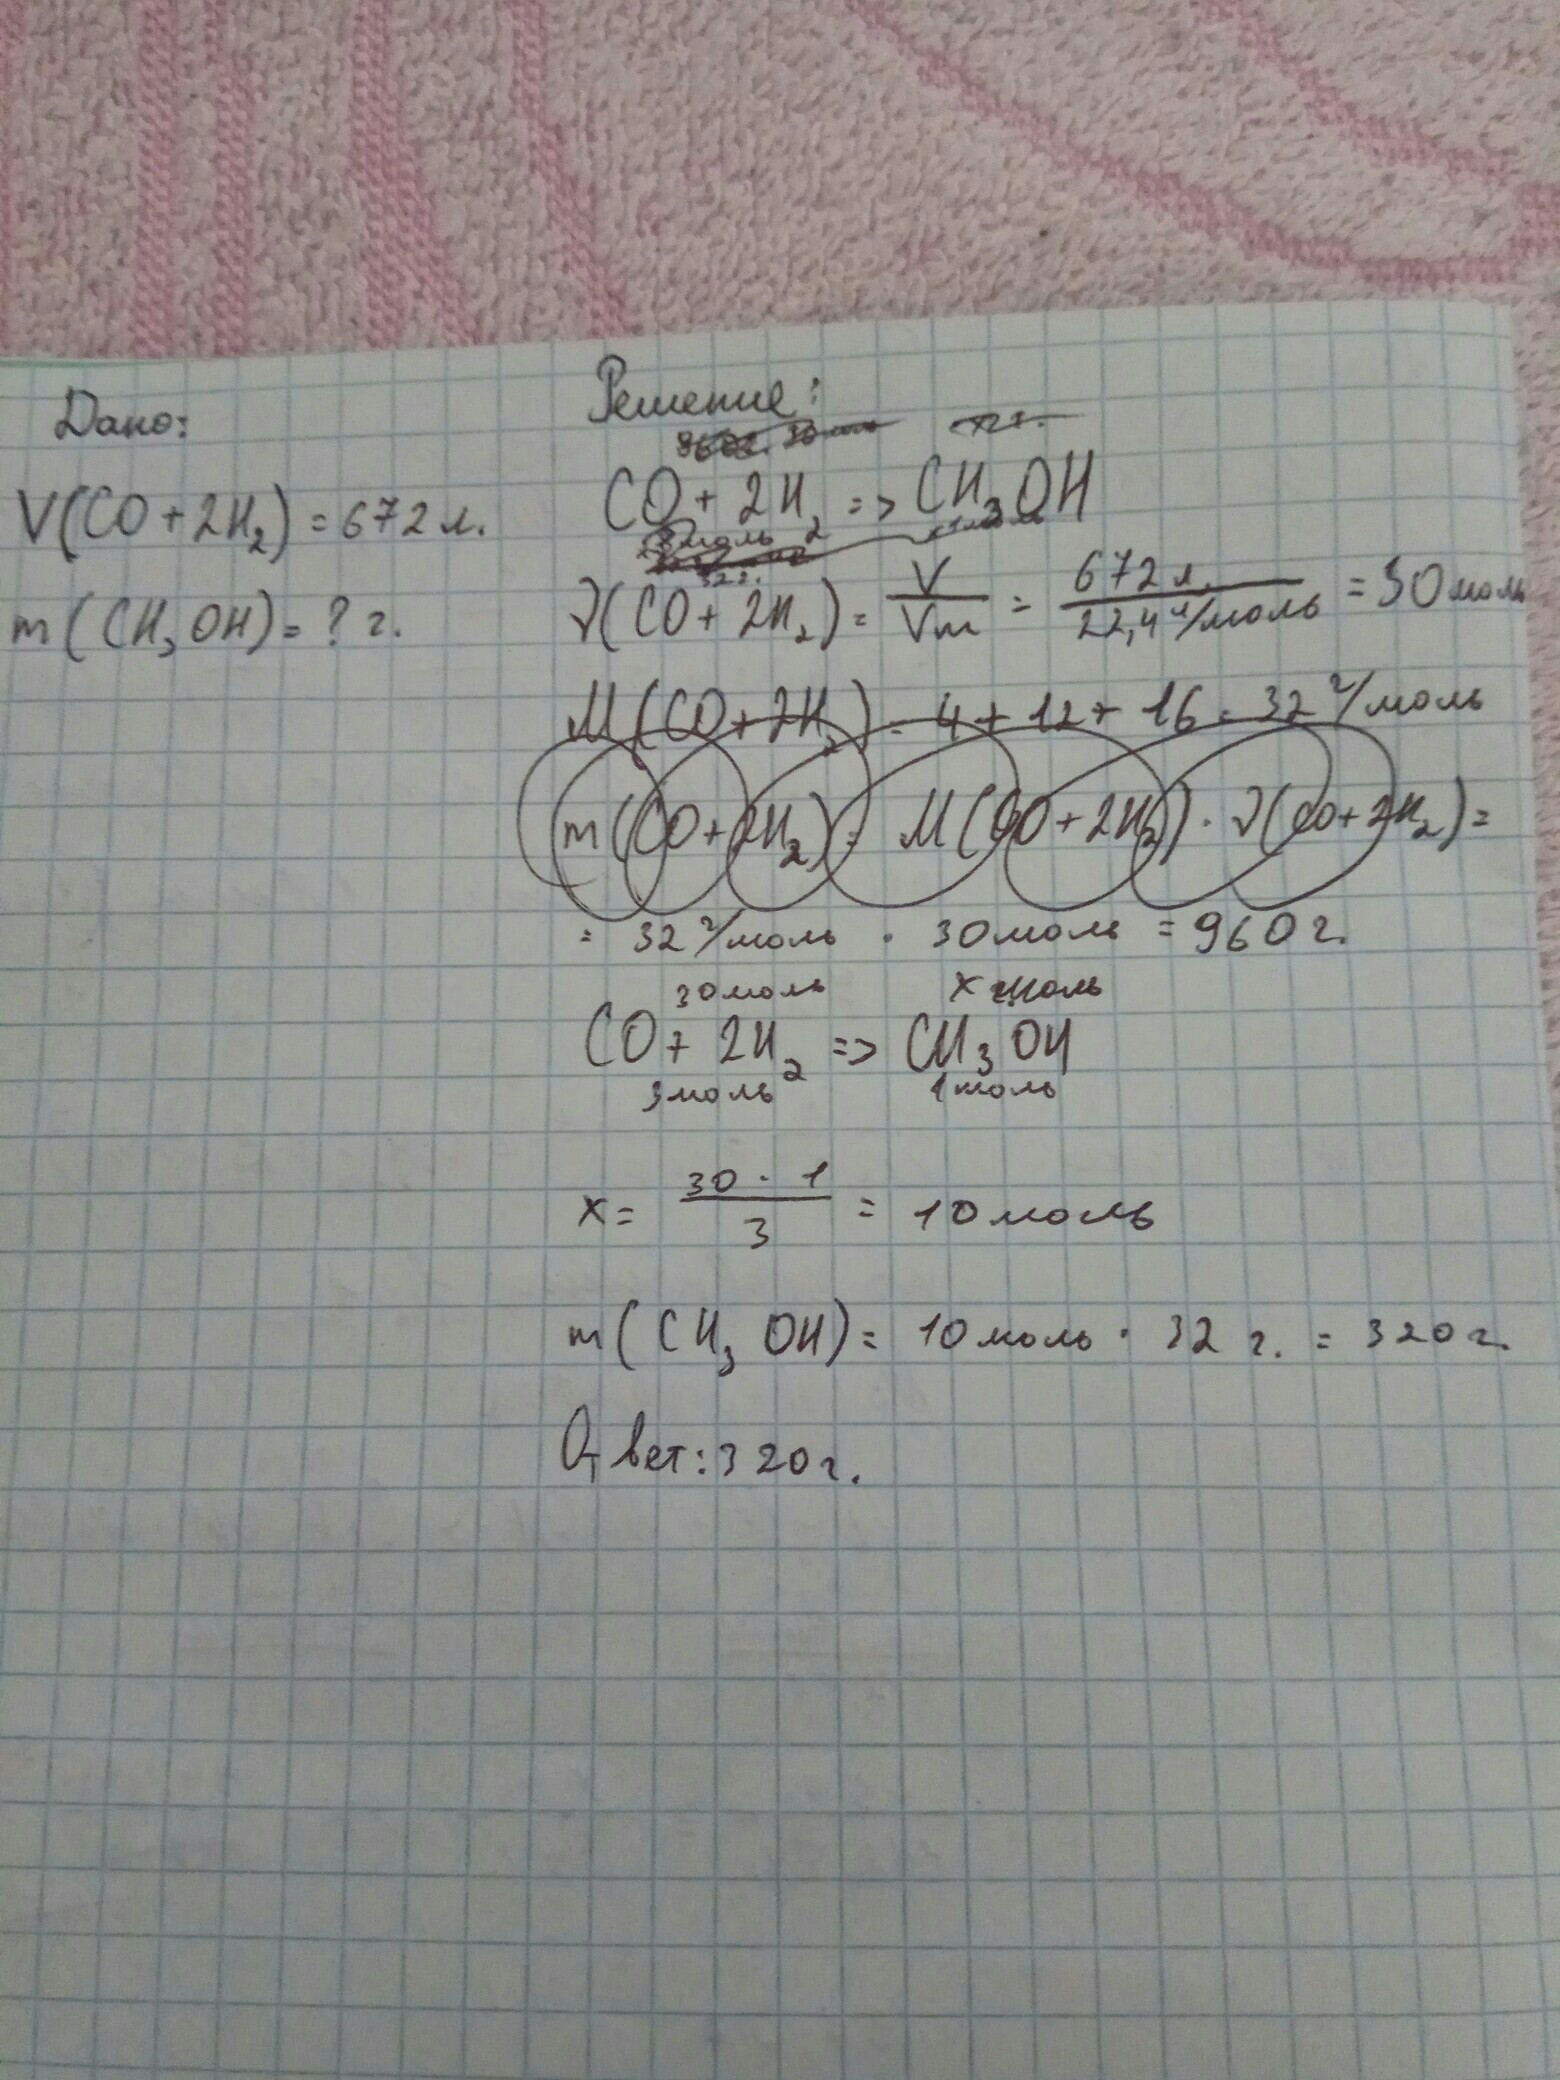 Дано:
V(CO+2H₂)=672л.
m(CH₃OH)=? г.
Решение:
CO+2H₂=>CH₃OH
ν(CO+2H₂)= V/Vm = 672л./22,4л/моль =30моль
M(CO+2H₂)=4+12+16=32г/моль
m(CO+2H₂)= M(CO+2H₂)·ν(CO+2H₂)=
= 32г/моль · 30моль =960г.
30моль x моль
CO+2H₂=>CH₃OH
3моль 1моль
x= 30·1/3 = 10моль
m(CH₃OH)= 10моль · 32 г. = 320г.
Ответ: 320г.